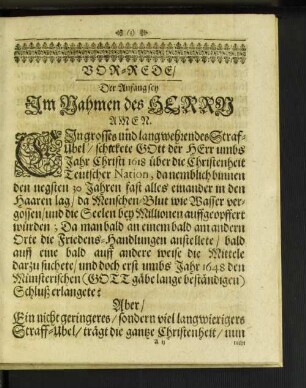 (o)
VOR-REDE/
Der Anfang sey
Im Nahmen des HERRN
AMEN.
EIn grosses und langwehrendes Straf-
Ubel / schickete GOtt der HErr umbs
Jahr Christi 1618 über die Christenheit
Teutscher Nation, da nemblich binnen
den negsten 30 Jahren fast alles einander in den
Haaren lag / da Menschen-Blut wie Wasser ver-
gossen / und die Seelen bey Millionen auffgeopffert
wurden; Da man bald an einem bald am andern
Orte die Friedens-Handlungen anstellete / bald
auff eine bald auff andere weise die Mittele
darzu suchete / und doch erst umbs Jahr 1648 den
Münsterischen (GOTT gäbe lange beständigen)
Schluß erlangete:
Aber /
Ein nicht geringeres / sondern viel langwierigers
Straff-Ubel / trägt die gantze Christenheit / nun
A ij
nicht